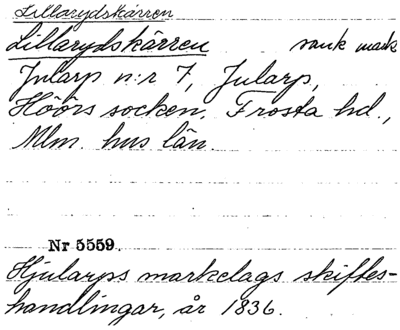 Lillarydskärren
Lillarydskärren sank mark
Jularp n:r 7, Jularp,
Höörs socken. Frosta hd.,
Mlm. hus län.
Nr 5559.
Hjularps markelags skiftes-
handlingar, år 1836.